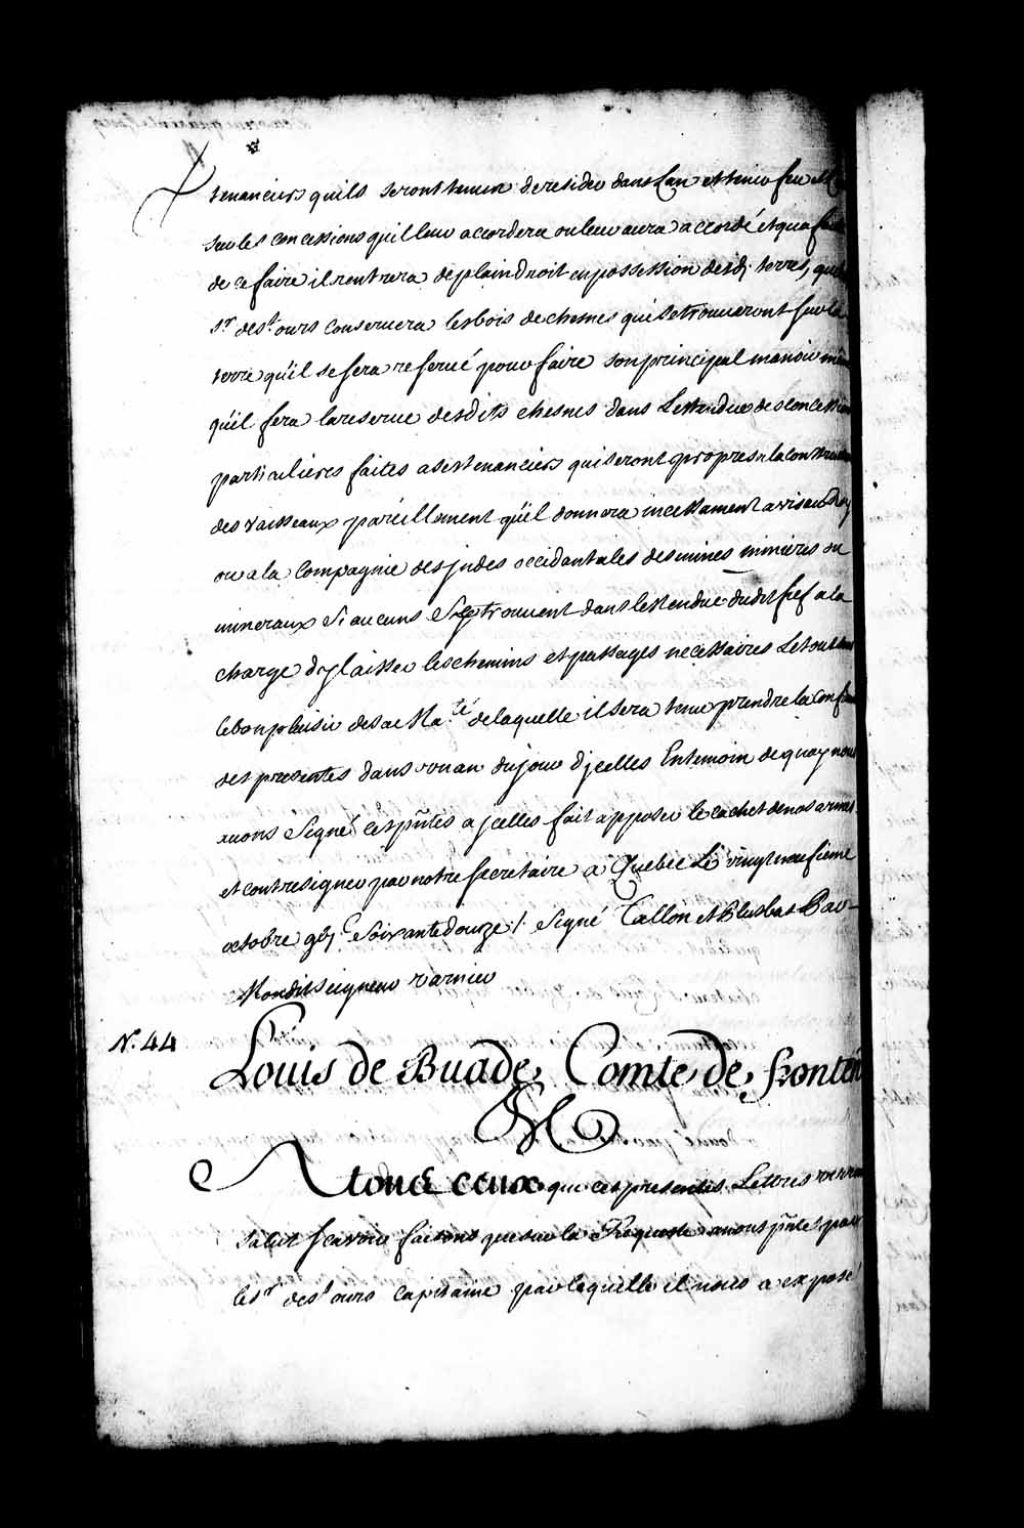 tenanciers quils seront tenun de resider dans Lan et tenir feu et
sur les concessions quil leur accordera ou leur aura accordé et qua
de ce faire il rentrera de plain droit en possession desd. terres, que
Sr. de St. ours conservera les bois de chesnes qui se trouveront sur la
terre quil se sera reservé pour faire son principal manoir
quil fera la reserve desdits chesnes dans Lestendue des concessions
particulieres faites a ses tenanciers qui seront propres a la construction
des vaisseaux pareillement quil donnera incessament avis au Roy
ou a la Compagnie des jndes occidantales des mines minieres ou
mineraux si aucuns se trouvent dans lestendue dudit fief a la
charge dy laisser les chemins et passages necessaires Le tout
le bon plaisir de sa Ma.té de laquelle il sera tenu prendre la
des presentes dans un an du jour djcelles En temoin de quoy nous
avons Signé ces pñtes a jcelles fait apposer le cachet de nos armes
et contresigner par notre secretaire a Quebec Le vingt neufieme
octobre gbj.C Soixante douze /. Signé Tallon et Plus bas Par
Mondit seigneur varnier
N.º 44
Louis de Buade, Comte de, fronten
A tous ceux que ces presentes Lettres verront
salut scavoir faisons que sur la Requeste a nous pñtee par
le Sr. de St ours capitaine par laquelle il nous a exposé